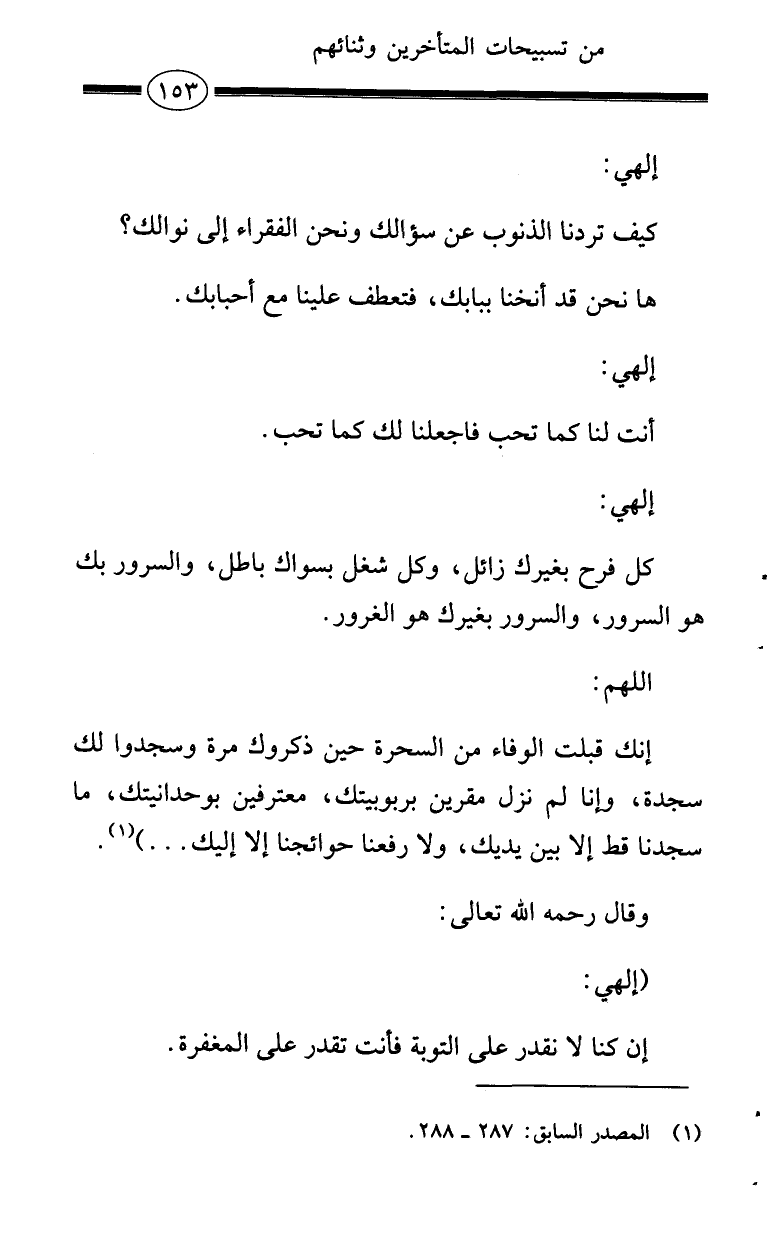 من تسبيحات المتأخرين وثنائهم
١٥٣
إلهي:
كيف تردنا الذنوب عن سؤالك ونحن الفقراء إلى نوالك؟
ها نحن قد أنخنا ببابك، فتعطف علينا مع أحبابك.
إلهي:
أنت لنا كما تحب فاجعلنا لك كما تحب.
إلهي:
كل فرح بغيرك زائل، وكل شغل بسواك باطل، والسرور بك
هو السرور، والسرور بغيرك هو الغرور.
اللهم:
إنك قبلت الوفاء من السحرة حين ذكروك مرة وسجدوا لك
سجدة، وإنا لم نزل مقرين بربوبيتك، معترفين بوحدانيتك، ما
سجدنا قط إلا بين يديك، ولا رفعنا حوائجنا إلا إليك...)(١).
وقال رحمه الله تعالى:
(إلهي:
إن كنا لا نقدر على التوبة فأنت تقدر على المغفرة.
(١) المصدر السابق: ٢٨٧ - ٢٨٨.